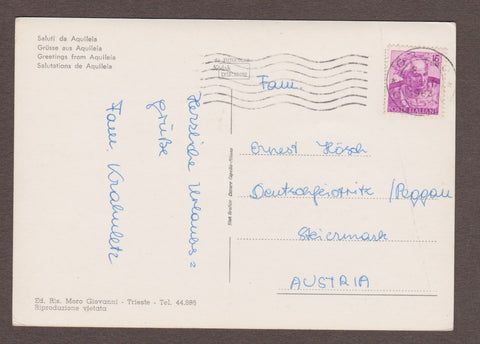 Saluti da Aquileia
Grüsse aus Aquileia
Greetings from Aquileia
Salutations de Aquileia
Herzliche Urlaubs=
grüße
Fam. Krahuletz
Fam.
Ernest Hösch
Deutschfeistritz /Peggau
Steiermark
AUSTRIA
POSTE ITALIANE
Ed. Ris. Moro Giovanni - Trieste - Tel. 44.886
Riproduzione vietata